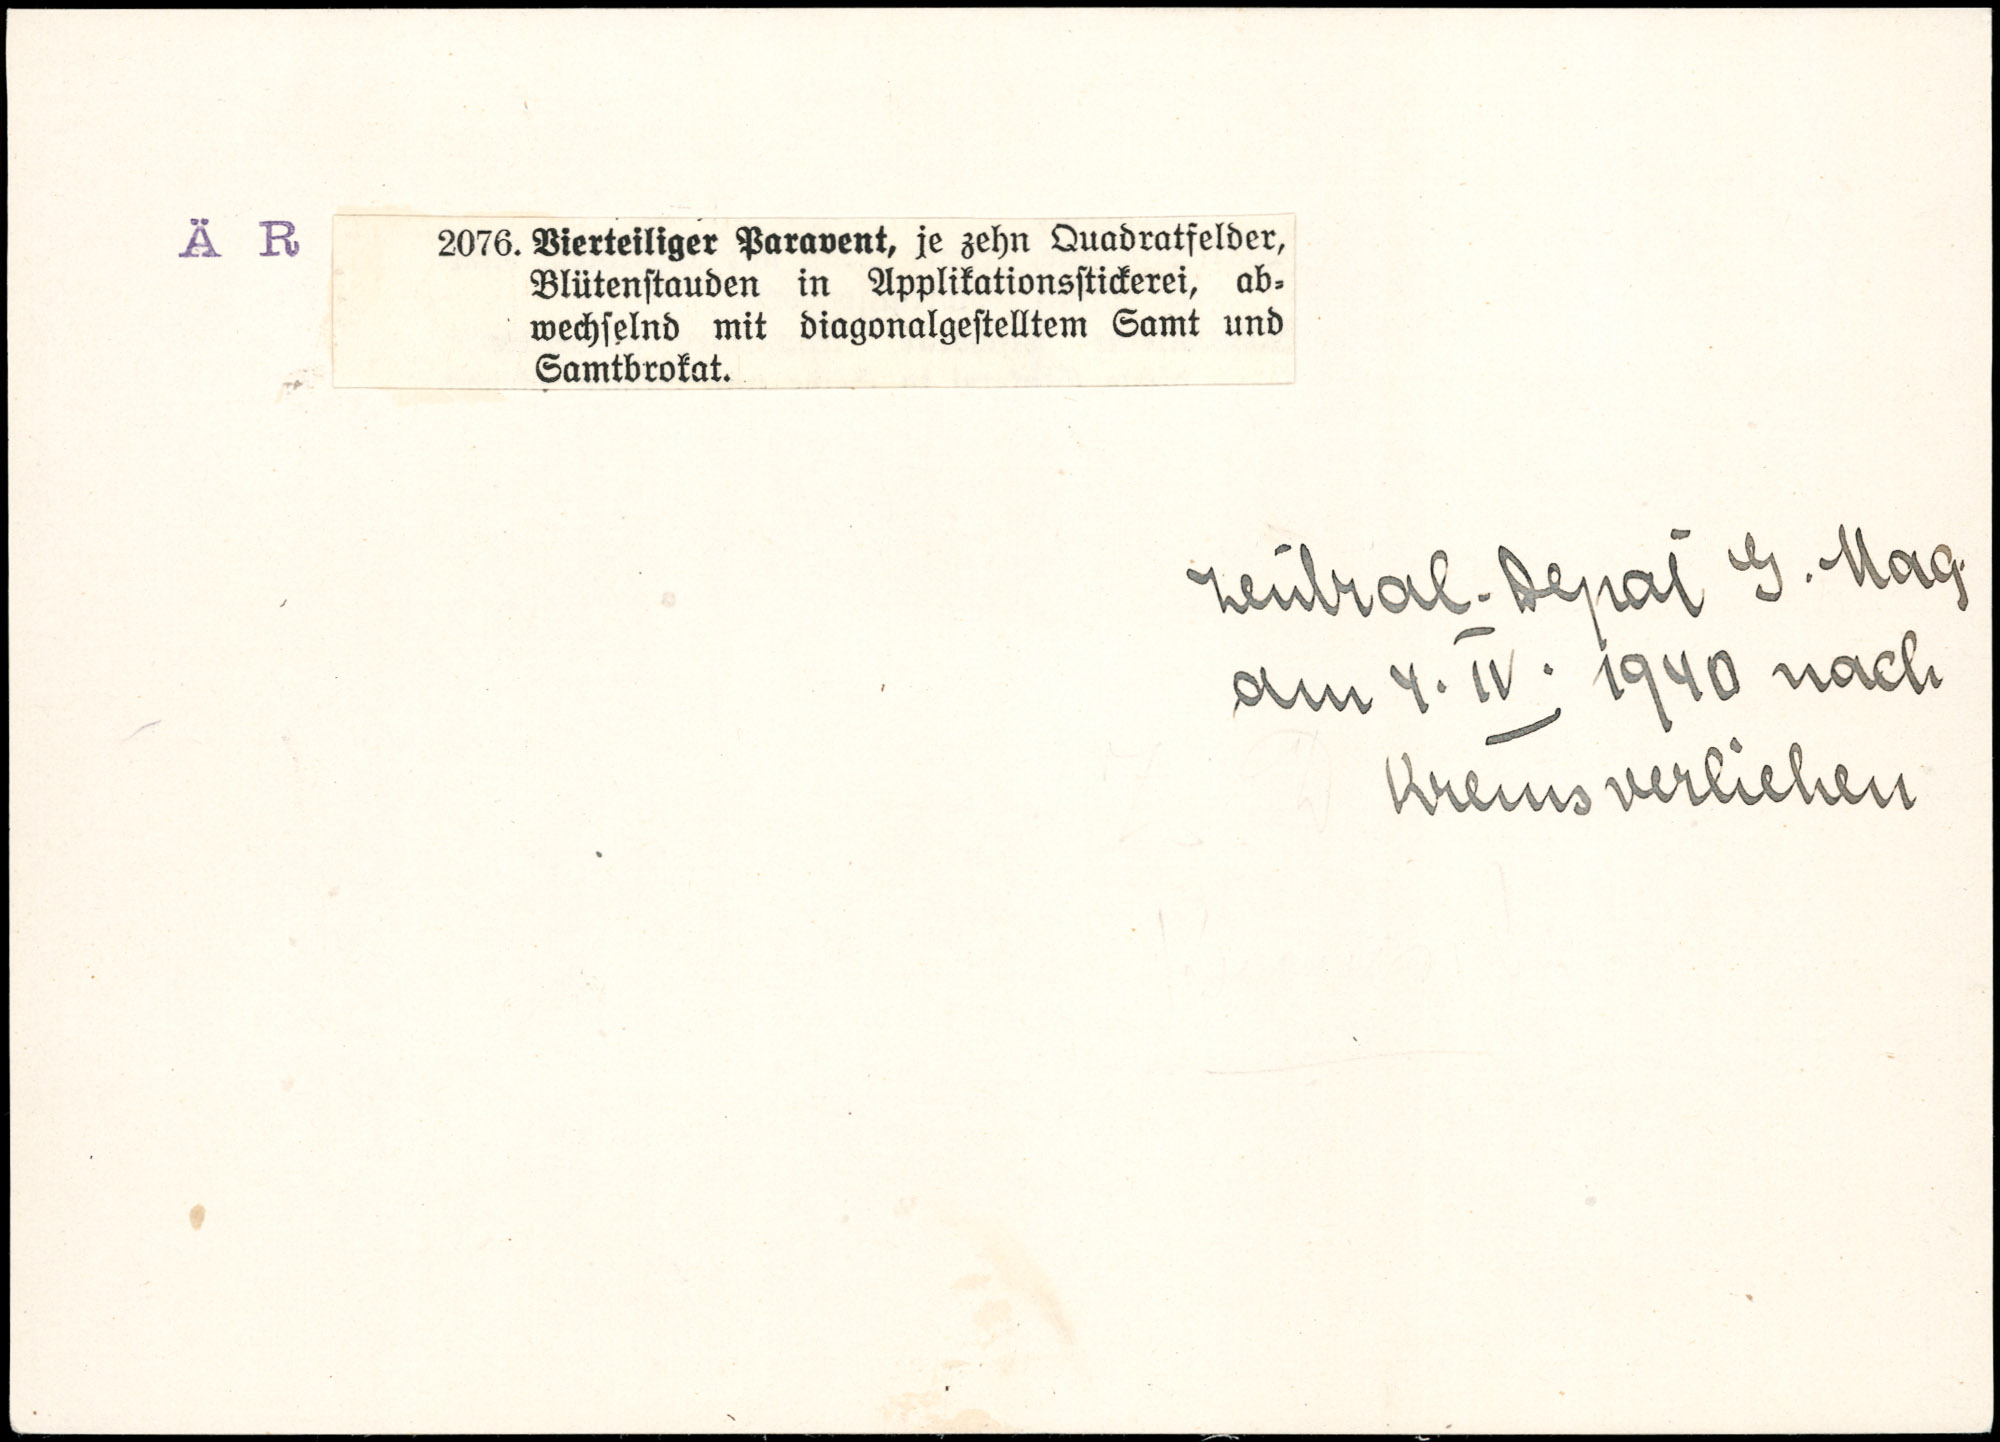 Ä R
2076. Vierteiliger Paravent, je zehn Quadratfelder,
Blütenstauden in Applikationsstickerei, ab-
wechselnd mit diagonalgestelltem Samt und
Samtbrokat.
Zentral-Depot G. Mag.
am 4. IV. 1940 nach
Krems verliehen